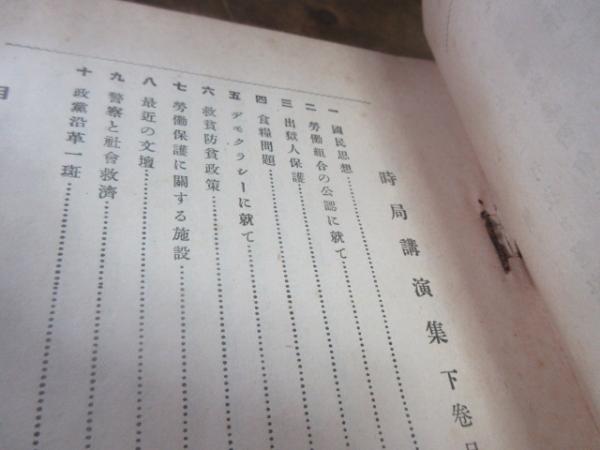 時局講演集 下卷
一 國民思想
二 勞働組合の公認に就て
三 出獄人保護
四 食糧問題
五 デモクラシーに就て
六 救貧防貧政策
七 勞働保護に關する施設
八 最近の文壇
九 警察と社會救濟
十 政黨沿革一斑